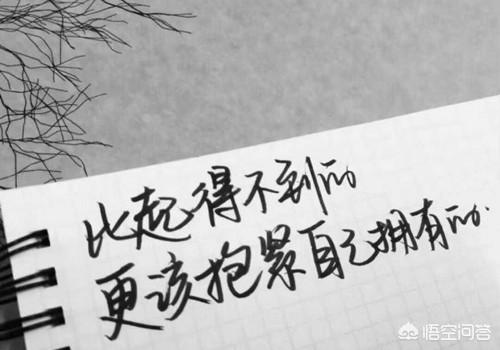 比起得不到的
更该抱紧自己拥有的.
悟空问答